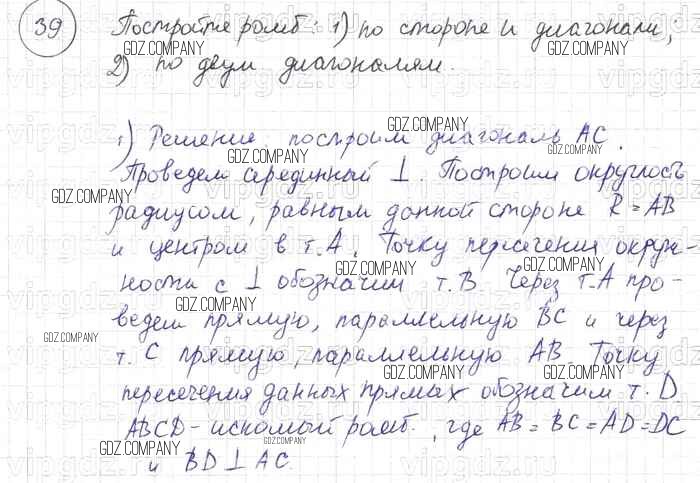 39 Постройте ромб: 1) по стороне и диагонали,
2) по двум диагоналям.
1) Решение построим диагональ AC.
Проведем серединный ⊥. Построим окружность
радиусом, равным данной стороне R = AB
и центром в т. A. Точку пересечения окруж-
ности с ⊥ обозначим т. B. Через т. A про-
ведем прямую, параллельную BC и через
т. C прямую, параллельную AB. Точку
пересечения данных прямых обозначим т. D.
ABCD - искомый ромб, где AB = BC = AD = DC
и BD ⊥ AC.